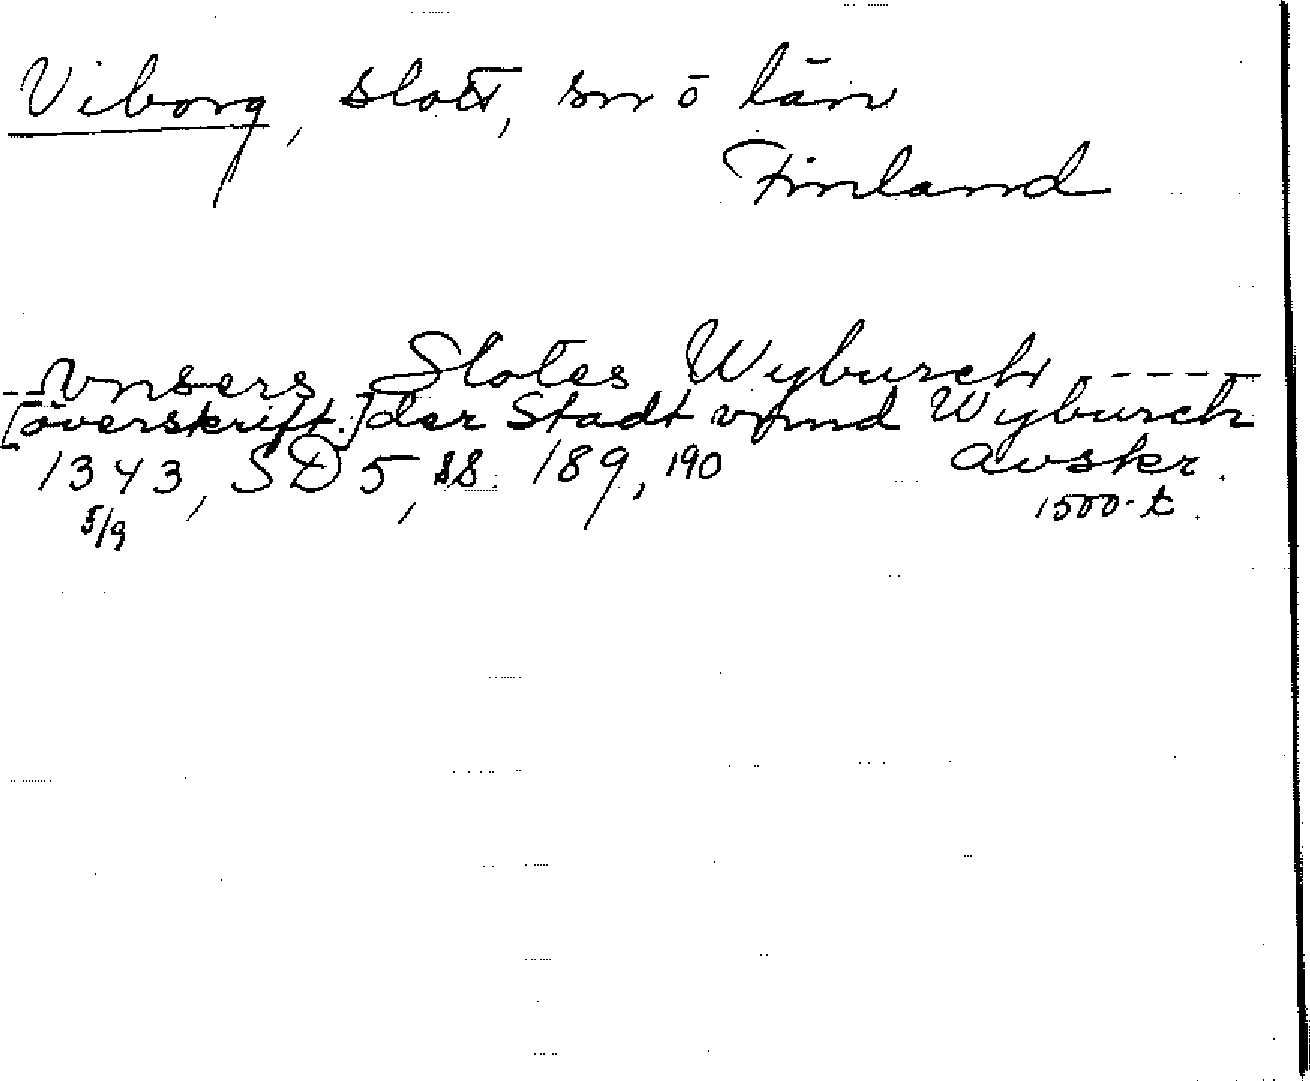 Viborg, slott, sn o län
Finland
-- vnsers Slotes Wyburch -----
[överskrift.] der Stadt vnnd Wyburch
1343, SD 5, ss. 189, 190 avskr.
5/9 1500-t.